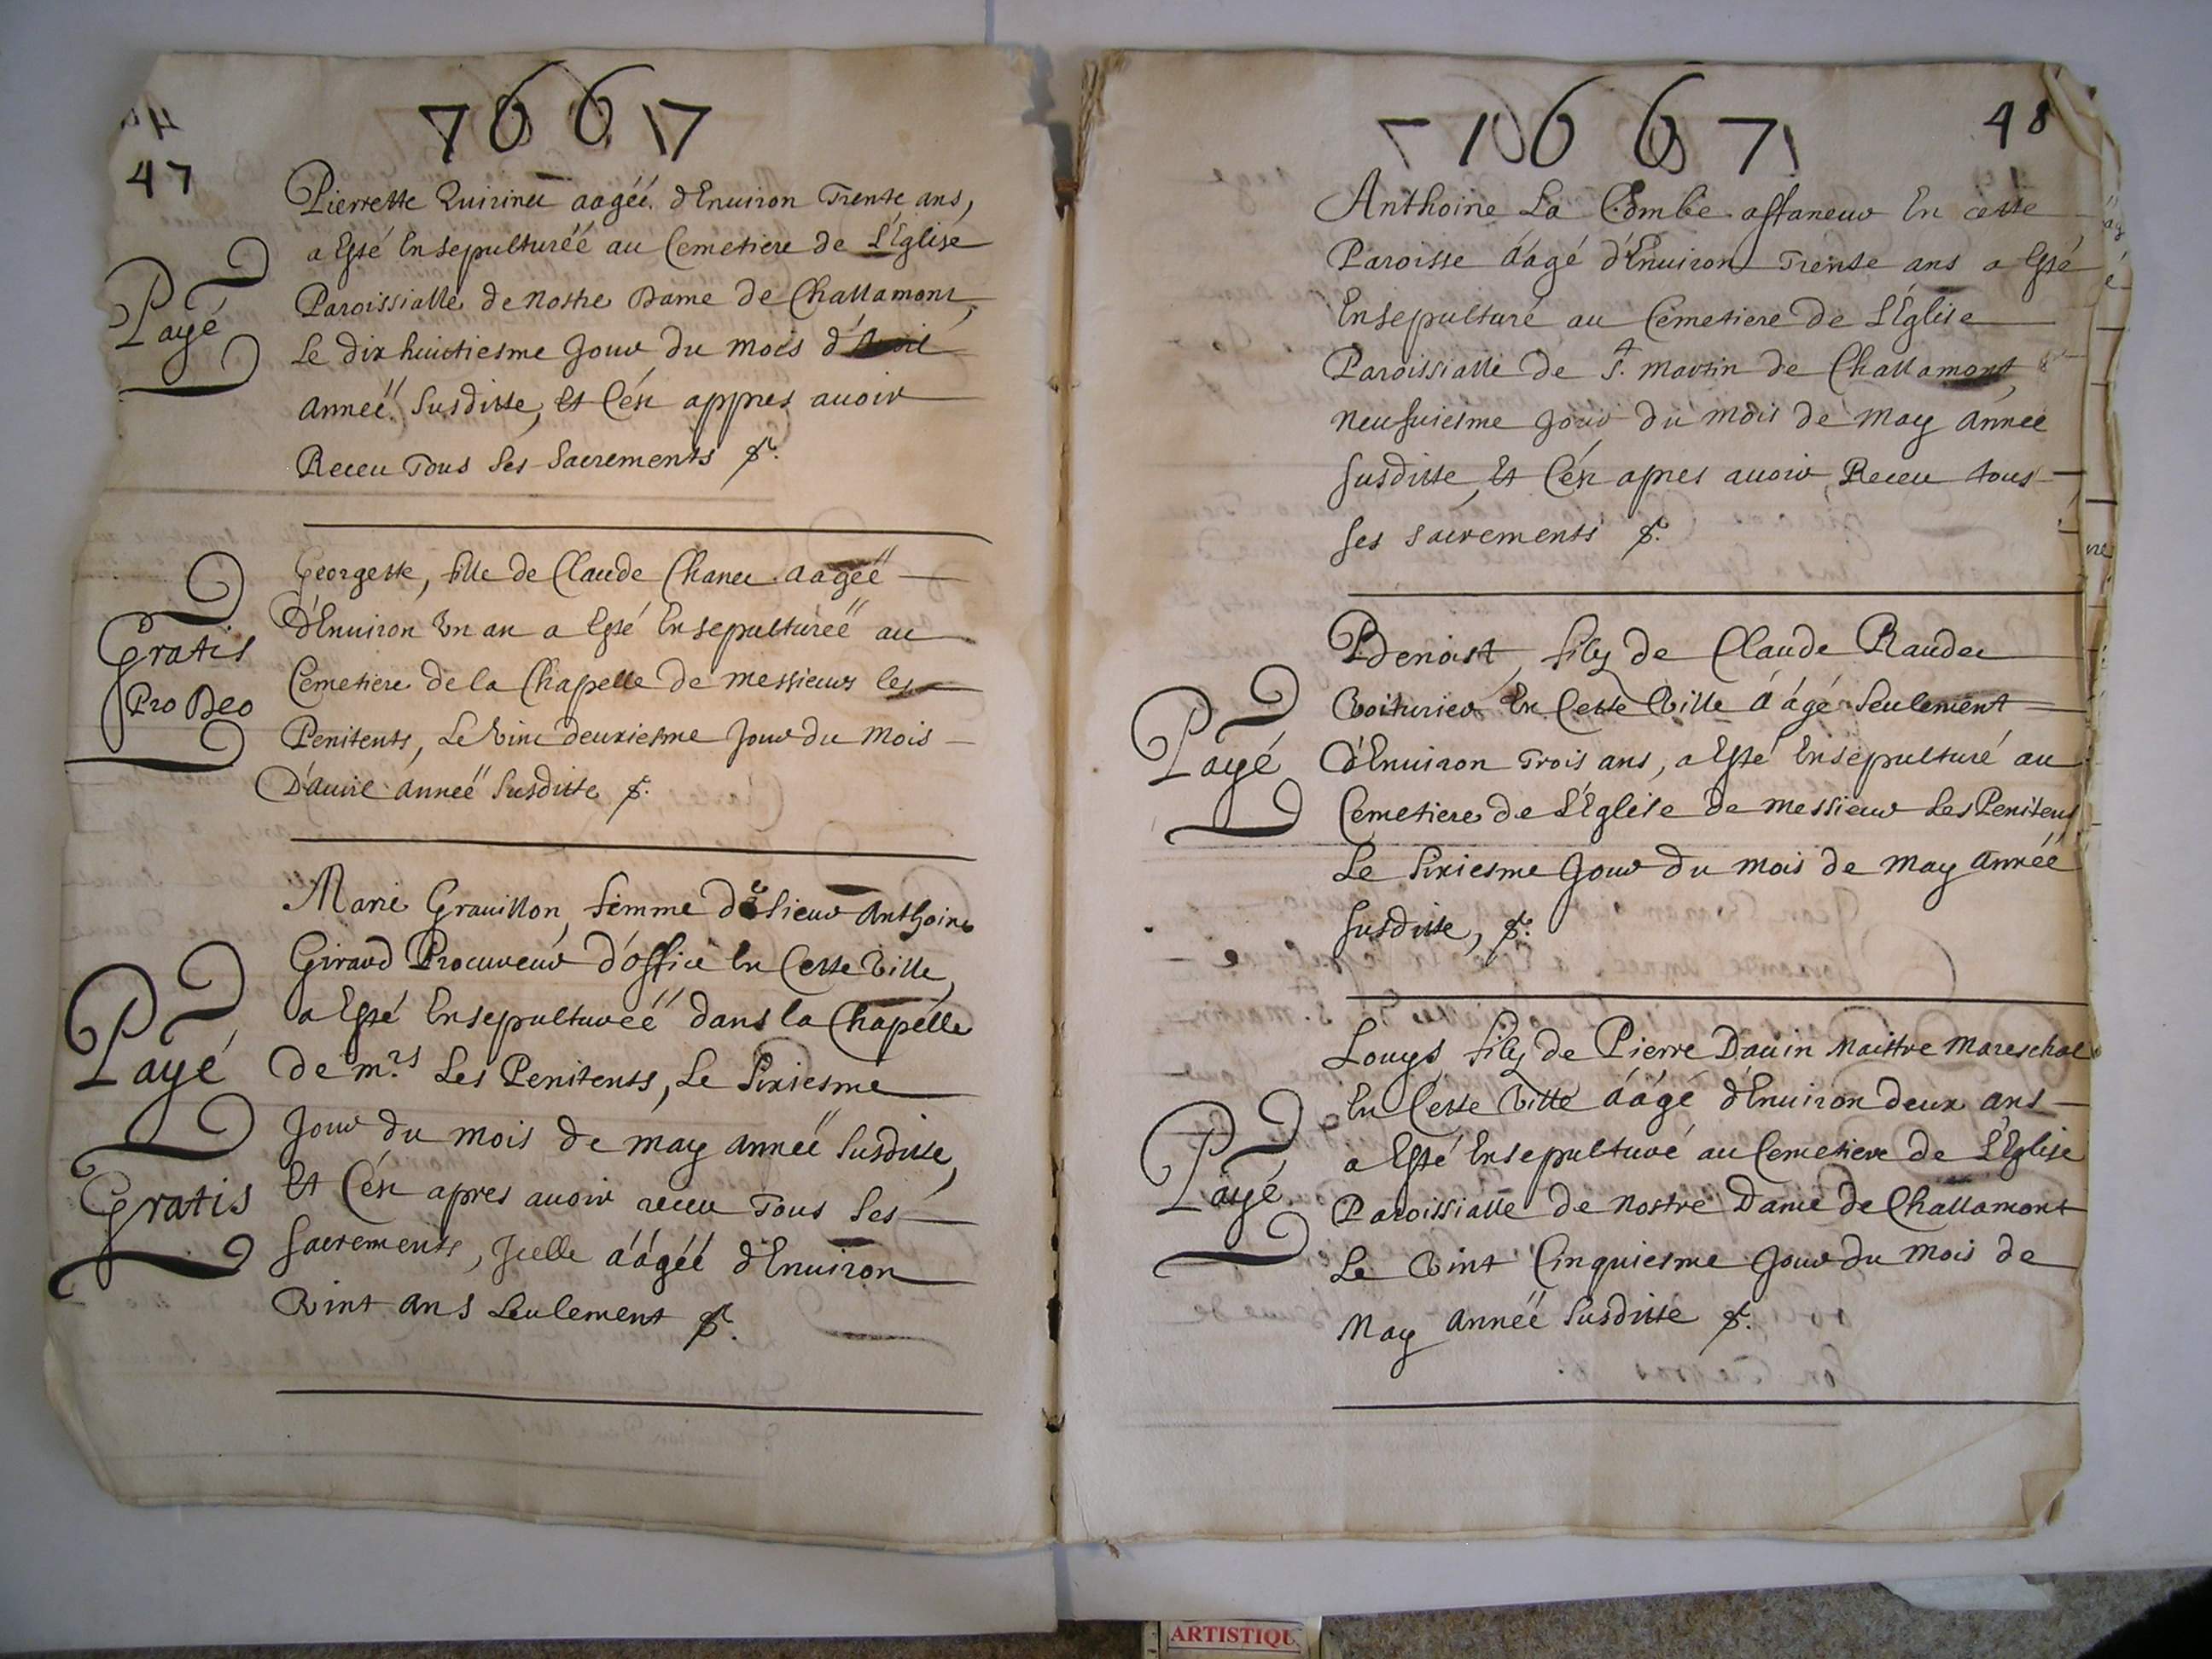 1667
47
Pierrette Quirineu aagéé d'Enuiron Trente ans,
a Esté Ensepulturéé au Cemetiere de L'Église
Paroissialle de Nostre Dame de Challamont,
Payé
Le dix huictiesme Jour du mois d'Auril
Année Susditte, Et C'ést appres auoir
Receu Tous Ses Sacrements &.
Georgette, fille de Claude Chaneu aagéë
D'Enuiron Vn an a Esté Ensepulturéë au
Gratis
Pro Deo
Cemetiere de la Chapelle de messieurs les
Penitents, Le Vint deuxiesme Jour du Mois
D'auril annéë Susditte &.
Marie Grauillon, femme de Sieur Anthoine
Giraud Procureur d'office En Cette Ville,
a Esté Ensepulturéë dans la Chapélle
Payé
De m.rs Les Penitents, Le Sixiesme
Jour du mois de may annéë Susditte,
Gratis
Et C'ést apres auoir receu Tous Ses
Sacrements, Icelle áágéé d'Enuiron
Vint ans Seulement &.
1667
48
Anthoine La Combe affaneur En cette
Paroisse áagé d'Enuiron Trente ans a Esté
Ensepulturé au Cemetiere de L'Église
Paroissialle de St. Martin de Challamont
Neufuiesme Jour du mois de May Année
Susditte, Et C'ést apres auoir, Receu tous
ses sacrements &.
Benoist, fils de Claude Raudeu
Voiturier En Cette Ville áágé Seulement
Payé
d'Enuiron Trois ans, a Esté Ensepulturé au
Cemetiere de L'Église de Messieur Les Penitens
Le Sixiesme Jour du mois de may Annéé
Susditte, &.
Louys, fils de Pierre Dauin Maistre Mareschal
En Cette Ville áágé d'Enuiron deux ans
a Esté Ensepulturé au Cemetiere de L'Église
Payé
Paroissialle de Nostre Dame de Challamont
Le Vint Cinquiesme Jour du Mois de
May Annéë Susditte &.
ARTISTIQU